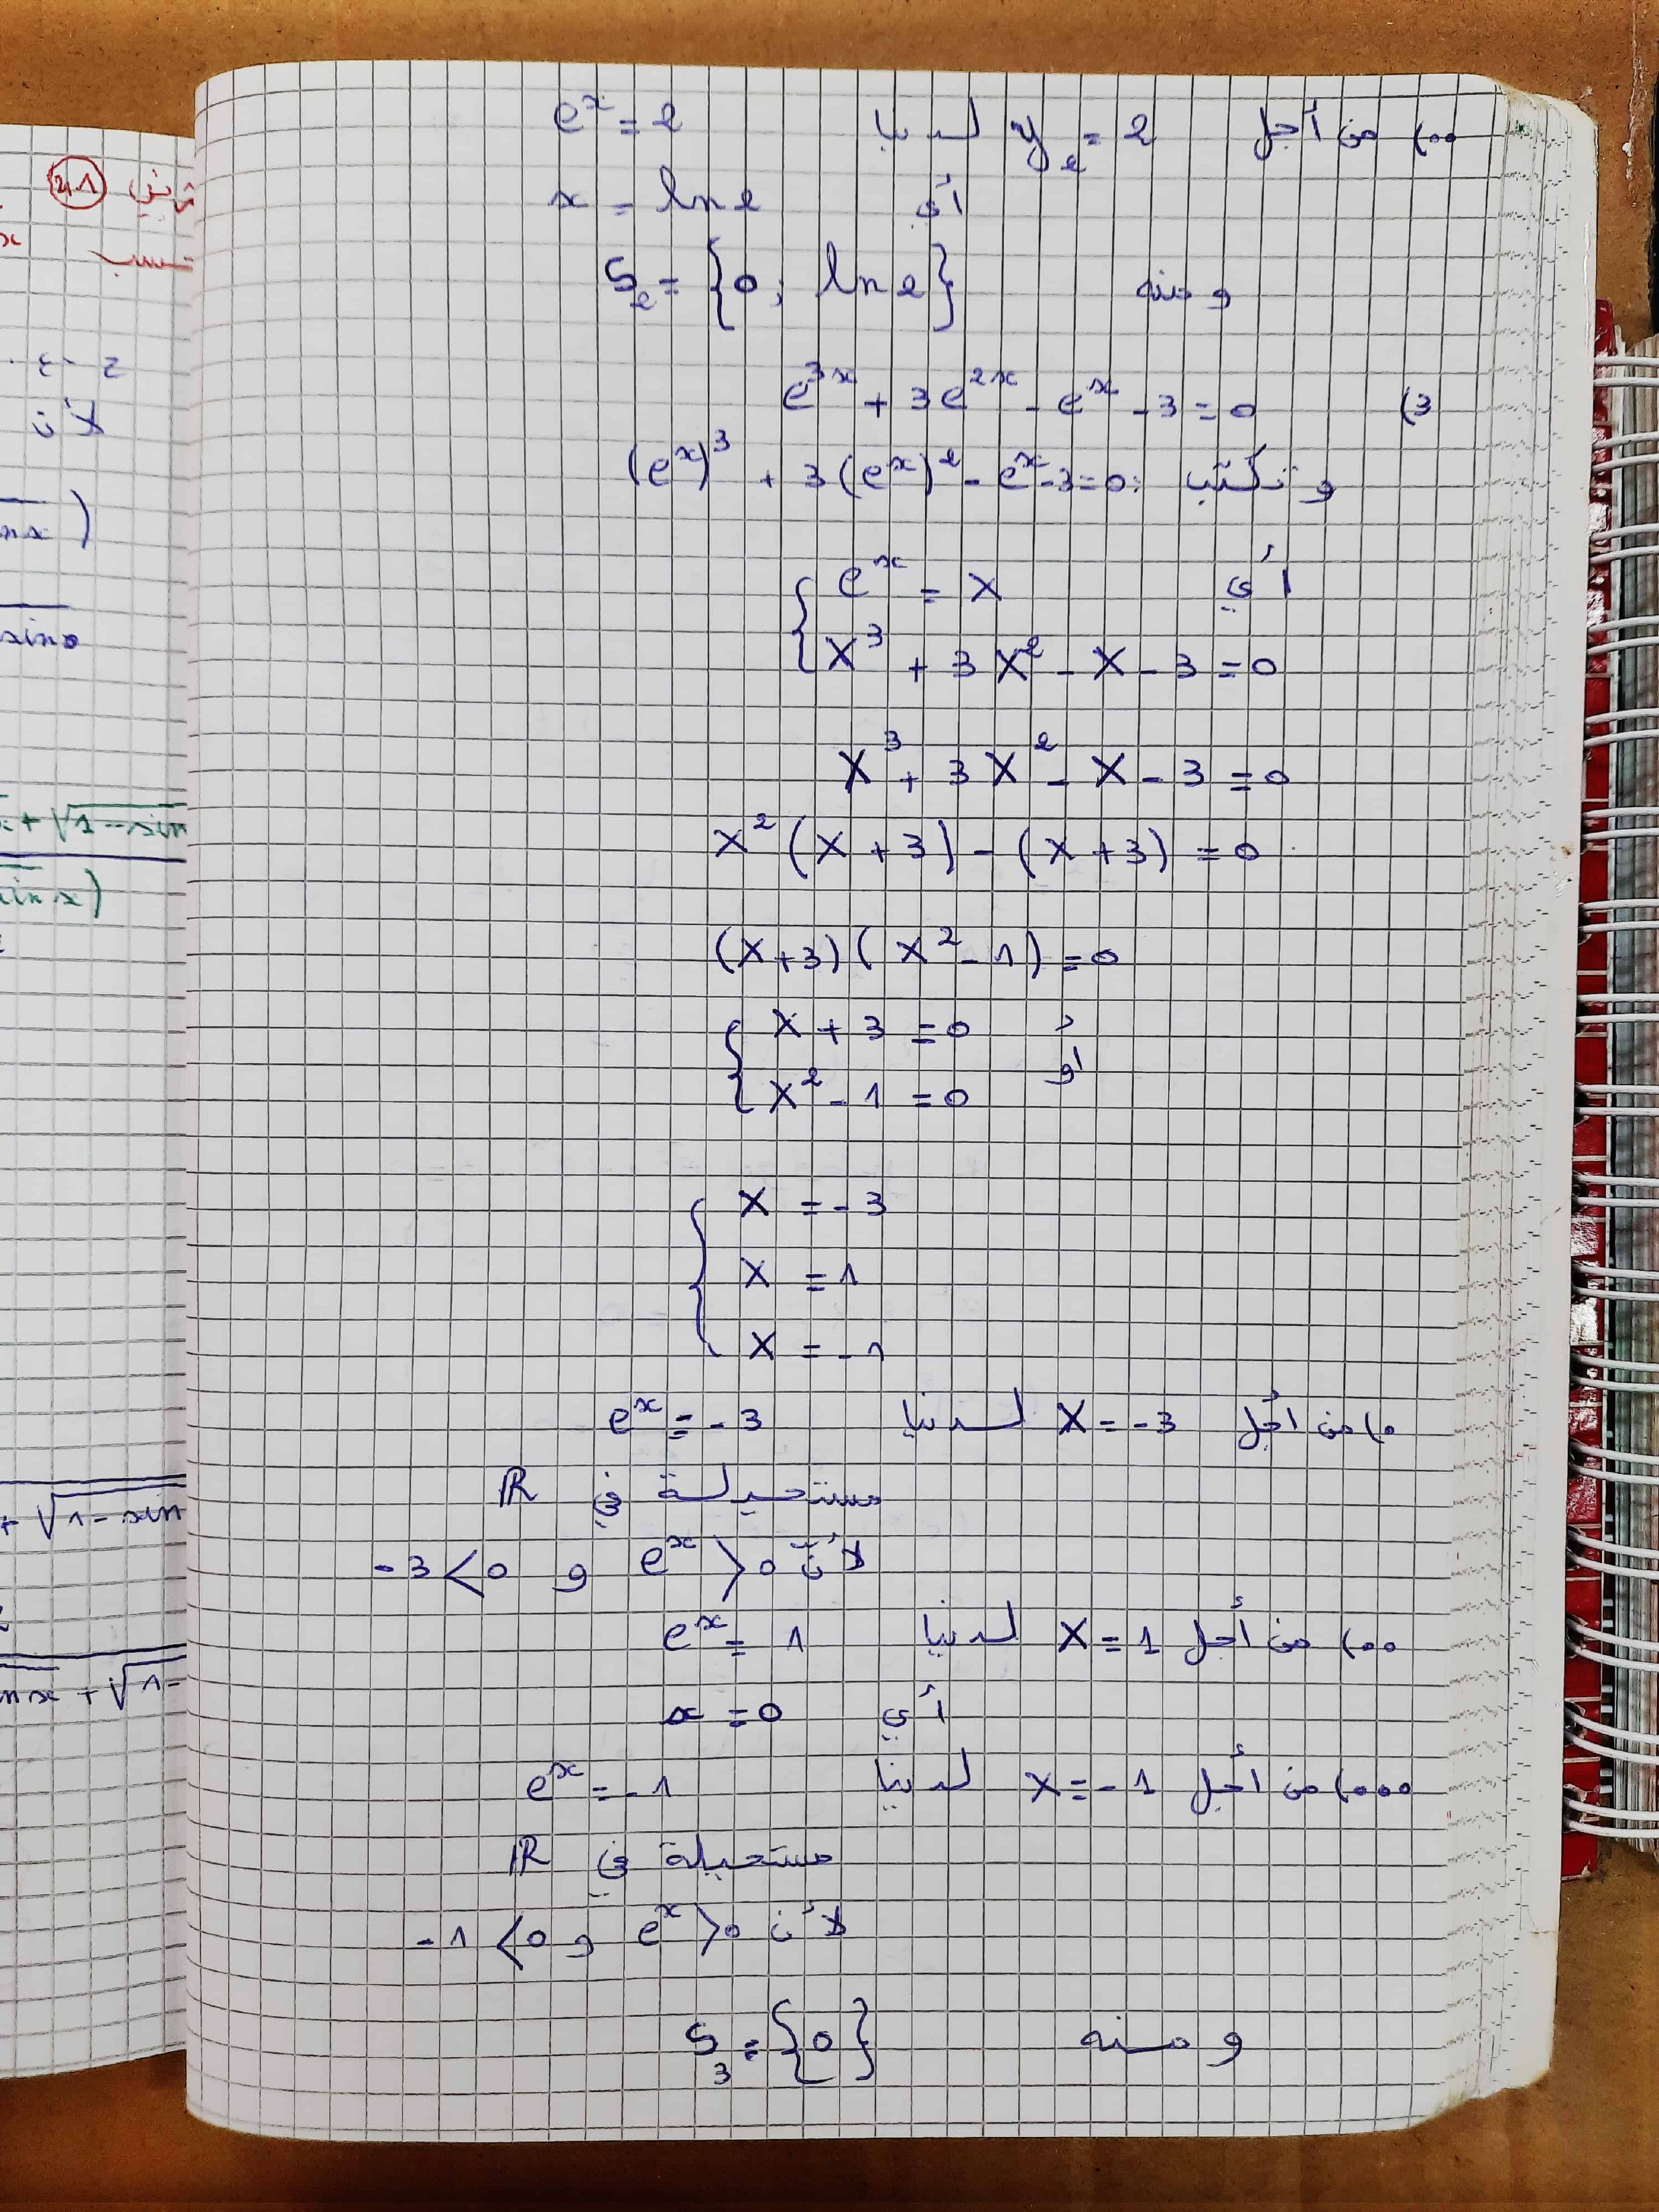 تمرين 41
..) من أجل y₂ = 2 لدينا eˣ = 2
أي x = ln 2
و منه S₂ = {0 ; ln 2}
3) e³ˣ + 3e²ˣ - eˣ - 3 = 0
و تكتب : (eˣ)³ + 3(eˣ)² - eˣ - 3 = 0
أي { eˣ = X
X³ + 3X² - X - 3 = 0
X³ + 3X² - X - 3 = 0
X²(X + 3) - (X + 3) = 0
(X + 3)(X² - 1) = 0
{ X + 3 = 0
أو
X² - 1 = 0
{ X = -3
X = 1
X = -1
.) من أجل X = -3 لدينا eˣ = -3
مستحيلة في ℝ
لأن eˣ > 0 و -3 < 0
..) من أجل X = 1 لدينا eˣ = 1
أي x = 0
...) من أجل X = -1 لدينا eˣ = -1
مستحيلة في ℝ
لأن eˣ > 0 و -1 < 0
و منه S₃ = {0}